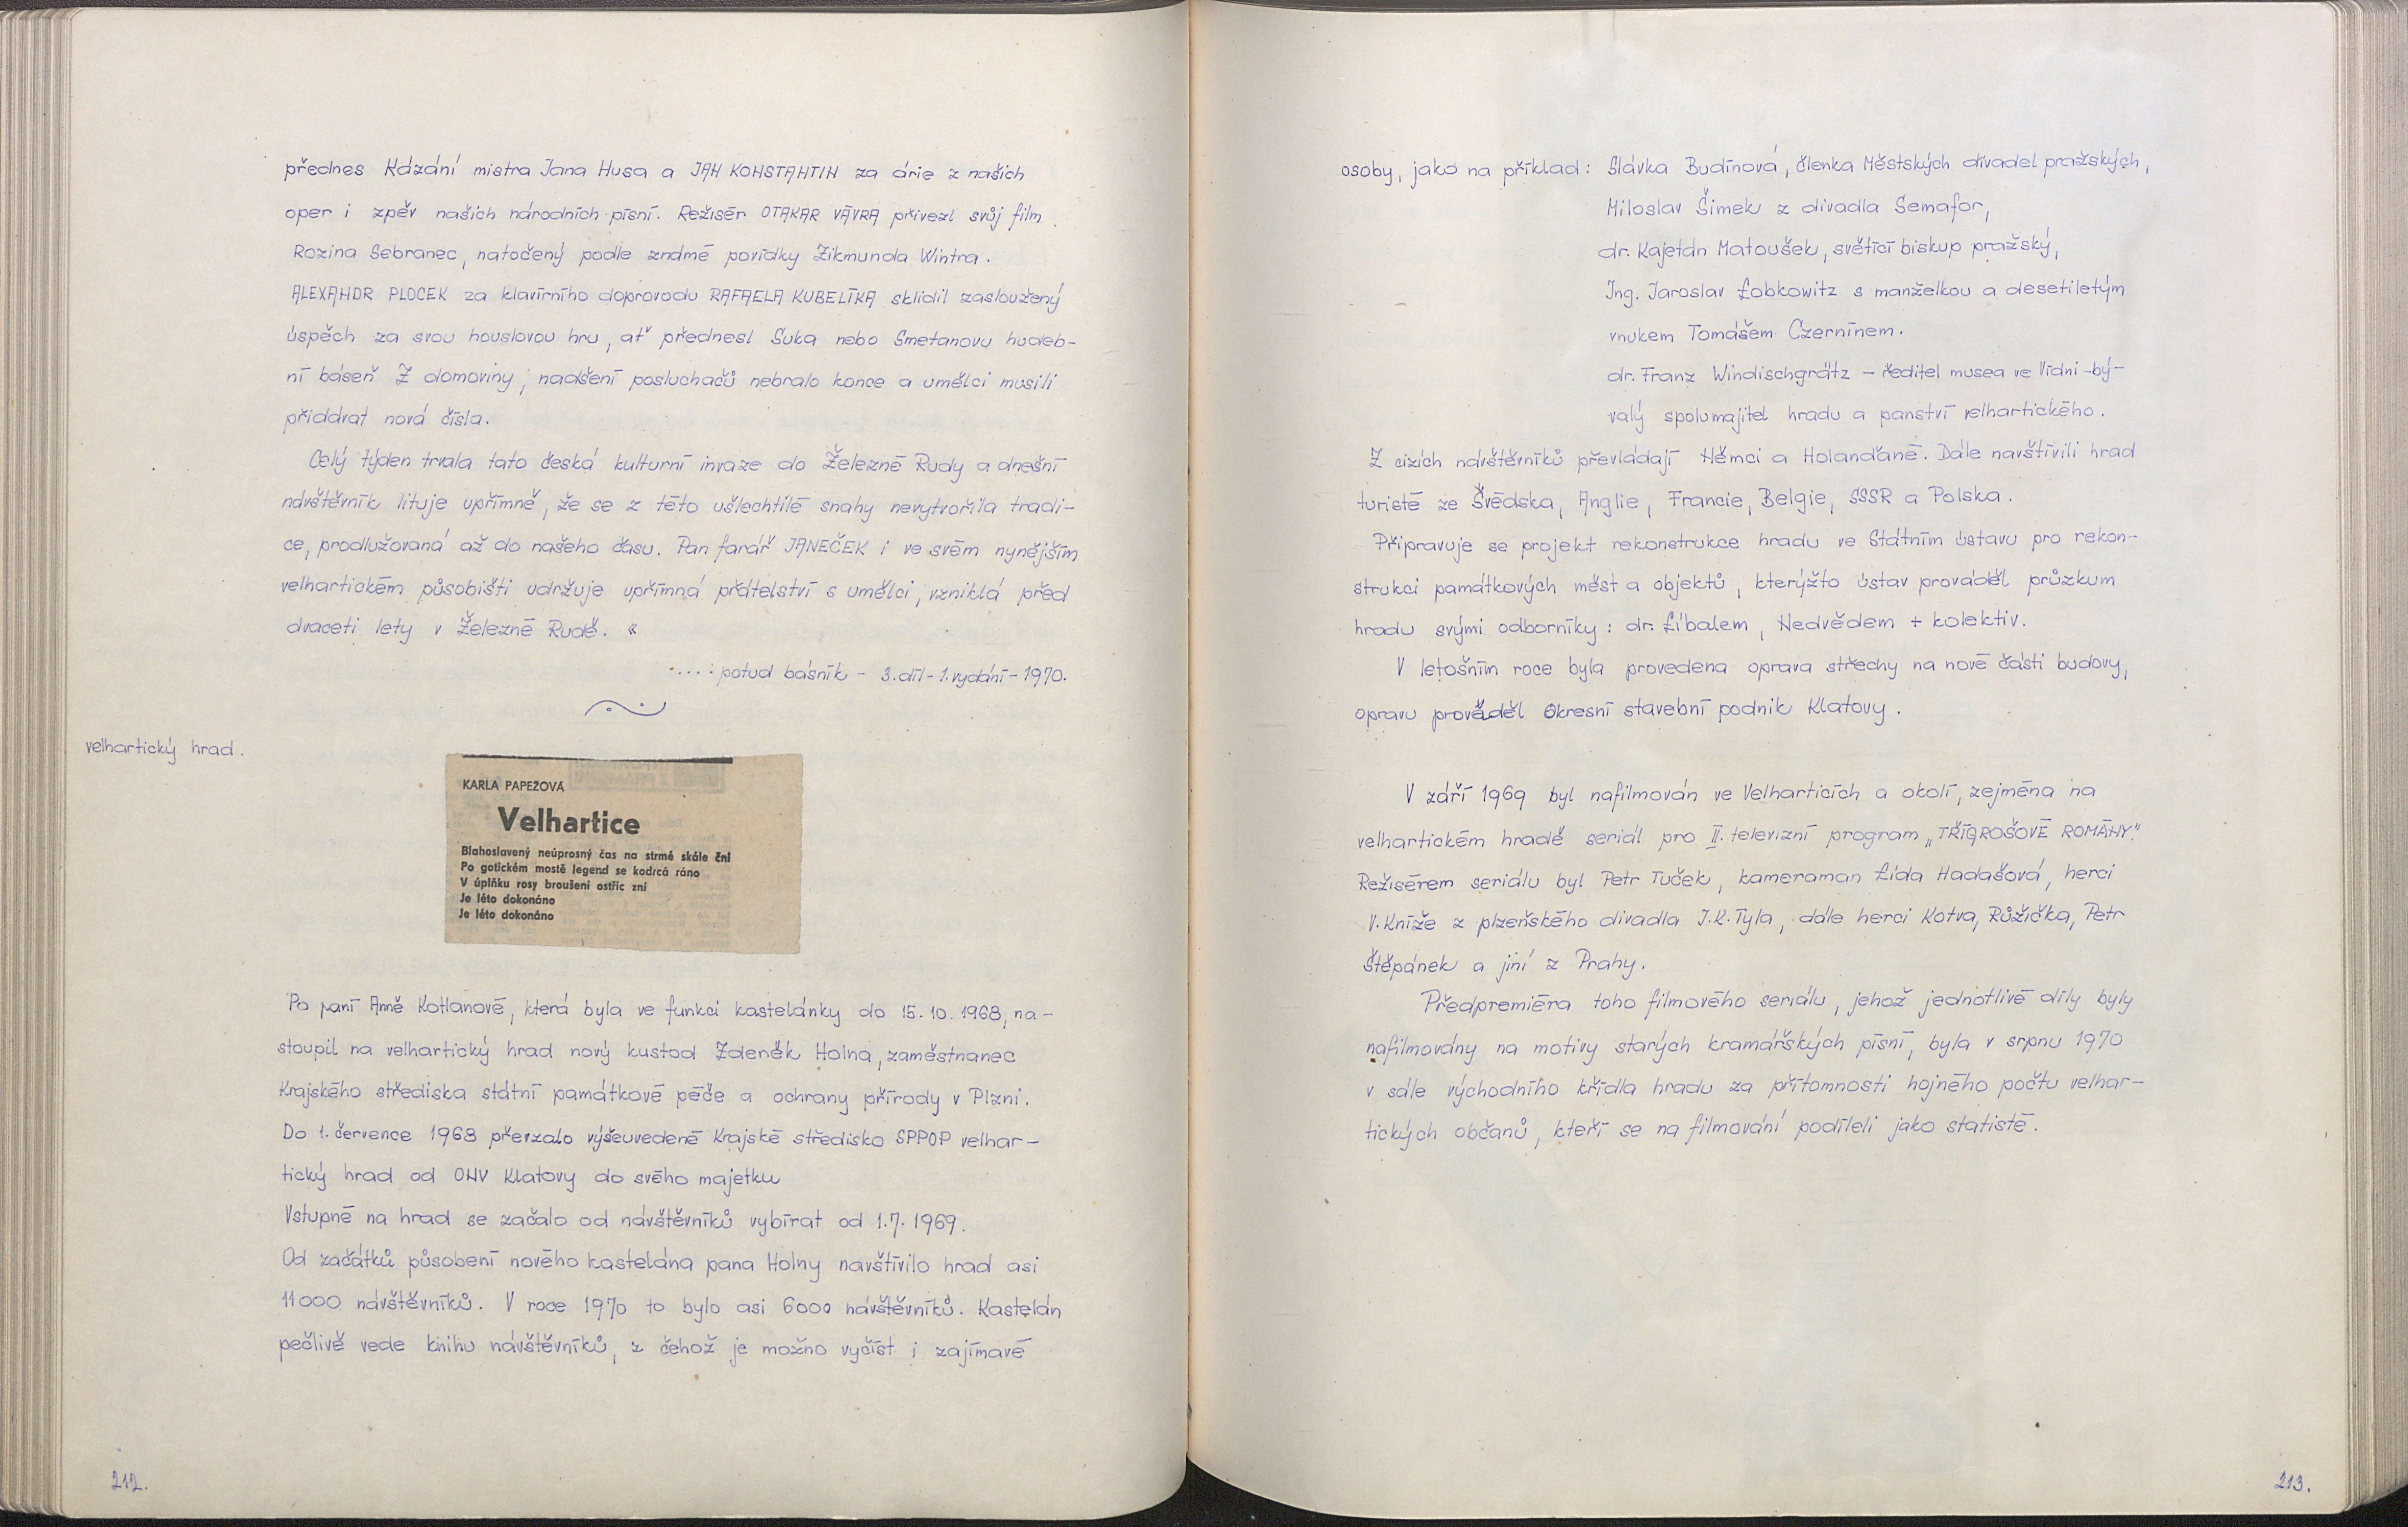 přednes Kázání mistra Jana Husa a JAN KONSTANTIN za árie z našich
oper i zpěv našich národních písní. Režisér OTAKAR VÁVRA přivezl svůj film
Rozina Sebranec, natočený podle známé povídky Zikmunda Wintra.
ALEXANDR PLOCEK za klavírního doprovodu RAFAELA KUBELÍKA sklidil zasloužený
úspěch za svou houslovou hru, ať přednesl Suka nebo Smetanovu hudeb-
ní báseň Z domoviny; nadšení posluchačů nebralo konce a umělci musili
přidávat nová čísla.
Celý týden trvala tato česká kulturní invaze do Železné Rudy a dnešní
návštěvník lituje upřímně, že se z této ušlechtilé snahy nevytvořila tradi-
ce, prodlužovaná až do našeho času. Pan farář JANEČEK i ve svém nynějším
velhartickém působišti udržuje upřímná přátelství s umělci, vzniklá před
dvaceti lety v Železné Rudě. «
....: potud básník - 3. díl - 1. vydání - 1970.
velhartický hrad.
KARLA PAPEŽOVÁ
Velhartice
Blahoslavený neúprosný čas na strmé skále ční
Po gotickém mostě legend se kodrcá ráno
V úplňku rosy broušení ostřic zní
Je léto dokonáno
Je léto dokonáno
Po paní Anně Kotlanové, která byla ve funkci kastelánky do 15.10.1968, na-
stoupil na velhartický hrad nový kustod Zdeněk Holna, zaměstnanec
Krajského střediska státní památkové péče a ochrany přírody v Plzni.
Do 1. července 1968 převzalo výšeuvedené Krajské středisko SPPOP velhar-
tický hrad od ONV Klatovy do svého majetku
Vstupné na hrad se začalo od návštěvníků vybírat od 1.7.1969.
Od začátků působení nového kastelána pana Holny navštívilo hrad asi
11000 návštěvníků. V roce 1970 to bylo asi 6000 návštěvníků. Kastelán
pečlivě vede knihu návštěvníků, z čehož je možno vyčíst i zajímavé
212.
osoby, jako na příklad: Slávka Budínová, členka Městských divadel pražských,
Miloslav Šimek z divadla Semafor,
dr. Kajetán Matoušek, světící biskup pražský,
Ing. Jaroslav Lobkowitz s manželkou a desetiletým
vnukem Tomášem Czernínem.
dr. Franz Windischgrätz - ředitel musea ve Vídni - bý-
valý spolumajitel hradu a panství velhartického.
Z cizích návštěvníků převládají Němci a Holanďané. Dále navštívili hrad
turisté ze Švédska, Anglie, Francie, Belgie, SSSR a Polska.
Připravuje se projekt rekonstrukce hradu ve Státním ústavu pro rekon-
strukci památkových měst a objektů, kterýžto ústav prováděl průzkum
hradu svými odborníky: dr. Líbalem, Nedvědem + kolektiv.
V letošním roce byla provedena oprava střechy na nové části budovy,
opravu prováděl Okresní stavební podnik Klatovy.
V září 1969 byl nafilmován ve Velharticích a okolí, zejména na
velhartickém hradě seriál pro II. televizní program „TŘÍGROŠOVÉ ROMÁNY."
Režisérem seriálu byl Petr Tuček, kameraman Lída Hadašová, herci
V. Kníže z plzeňského divadla J.K. Tyla, dále herci Kotva, Růžička, Petr
Štěpánek a jiní z Prahy.
Předpremiéra toho filmového seriálu, jehož jednotlivé díly byly
nafilmovány na motivy starých kramářských písní, byla v srpnu 1970
v sále východního křídla hradu za přítomnosti hojného počtu velhar-
tických občanů, kteří se na filmování podíleli jako statisté.
213.